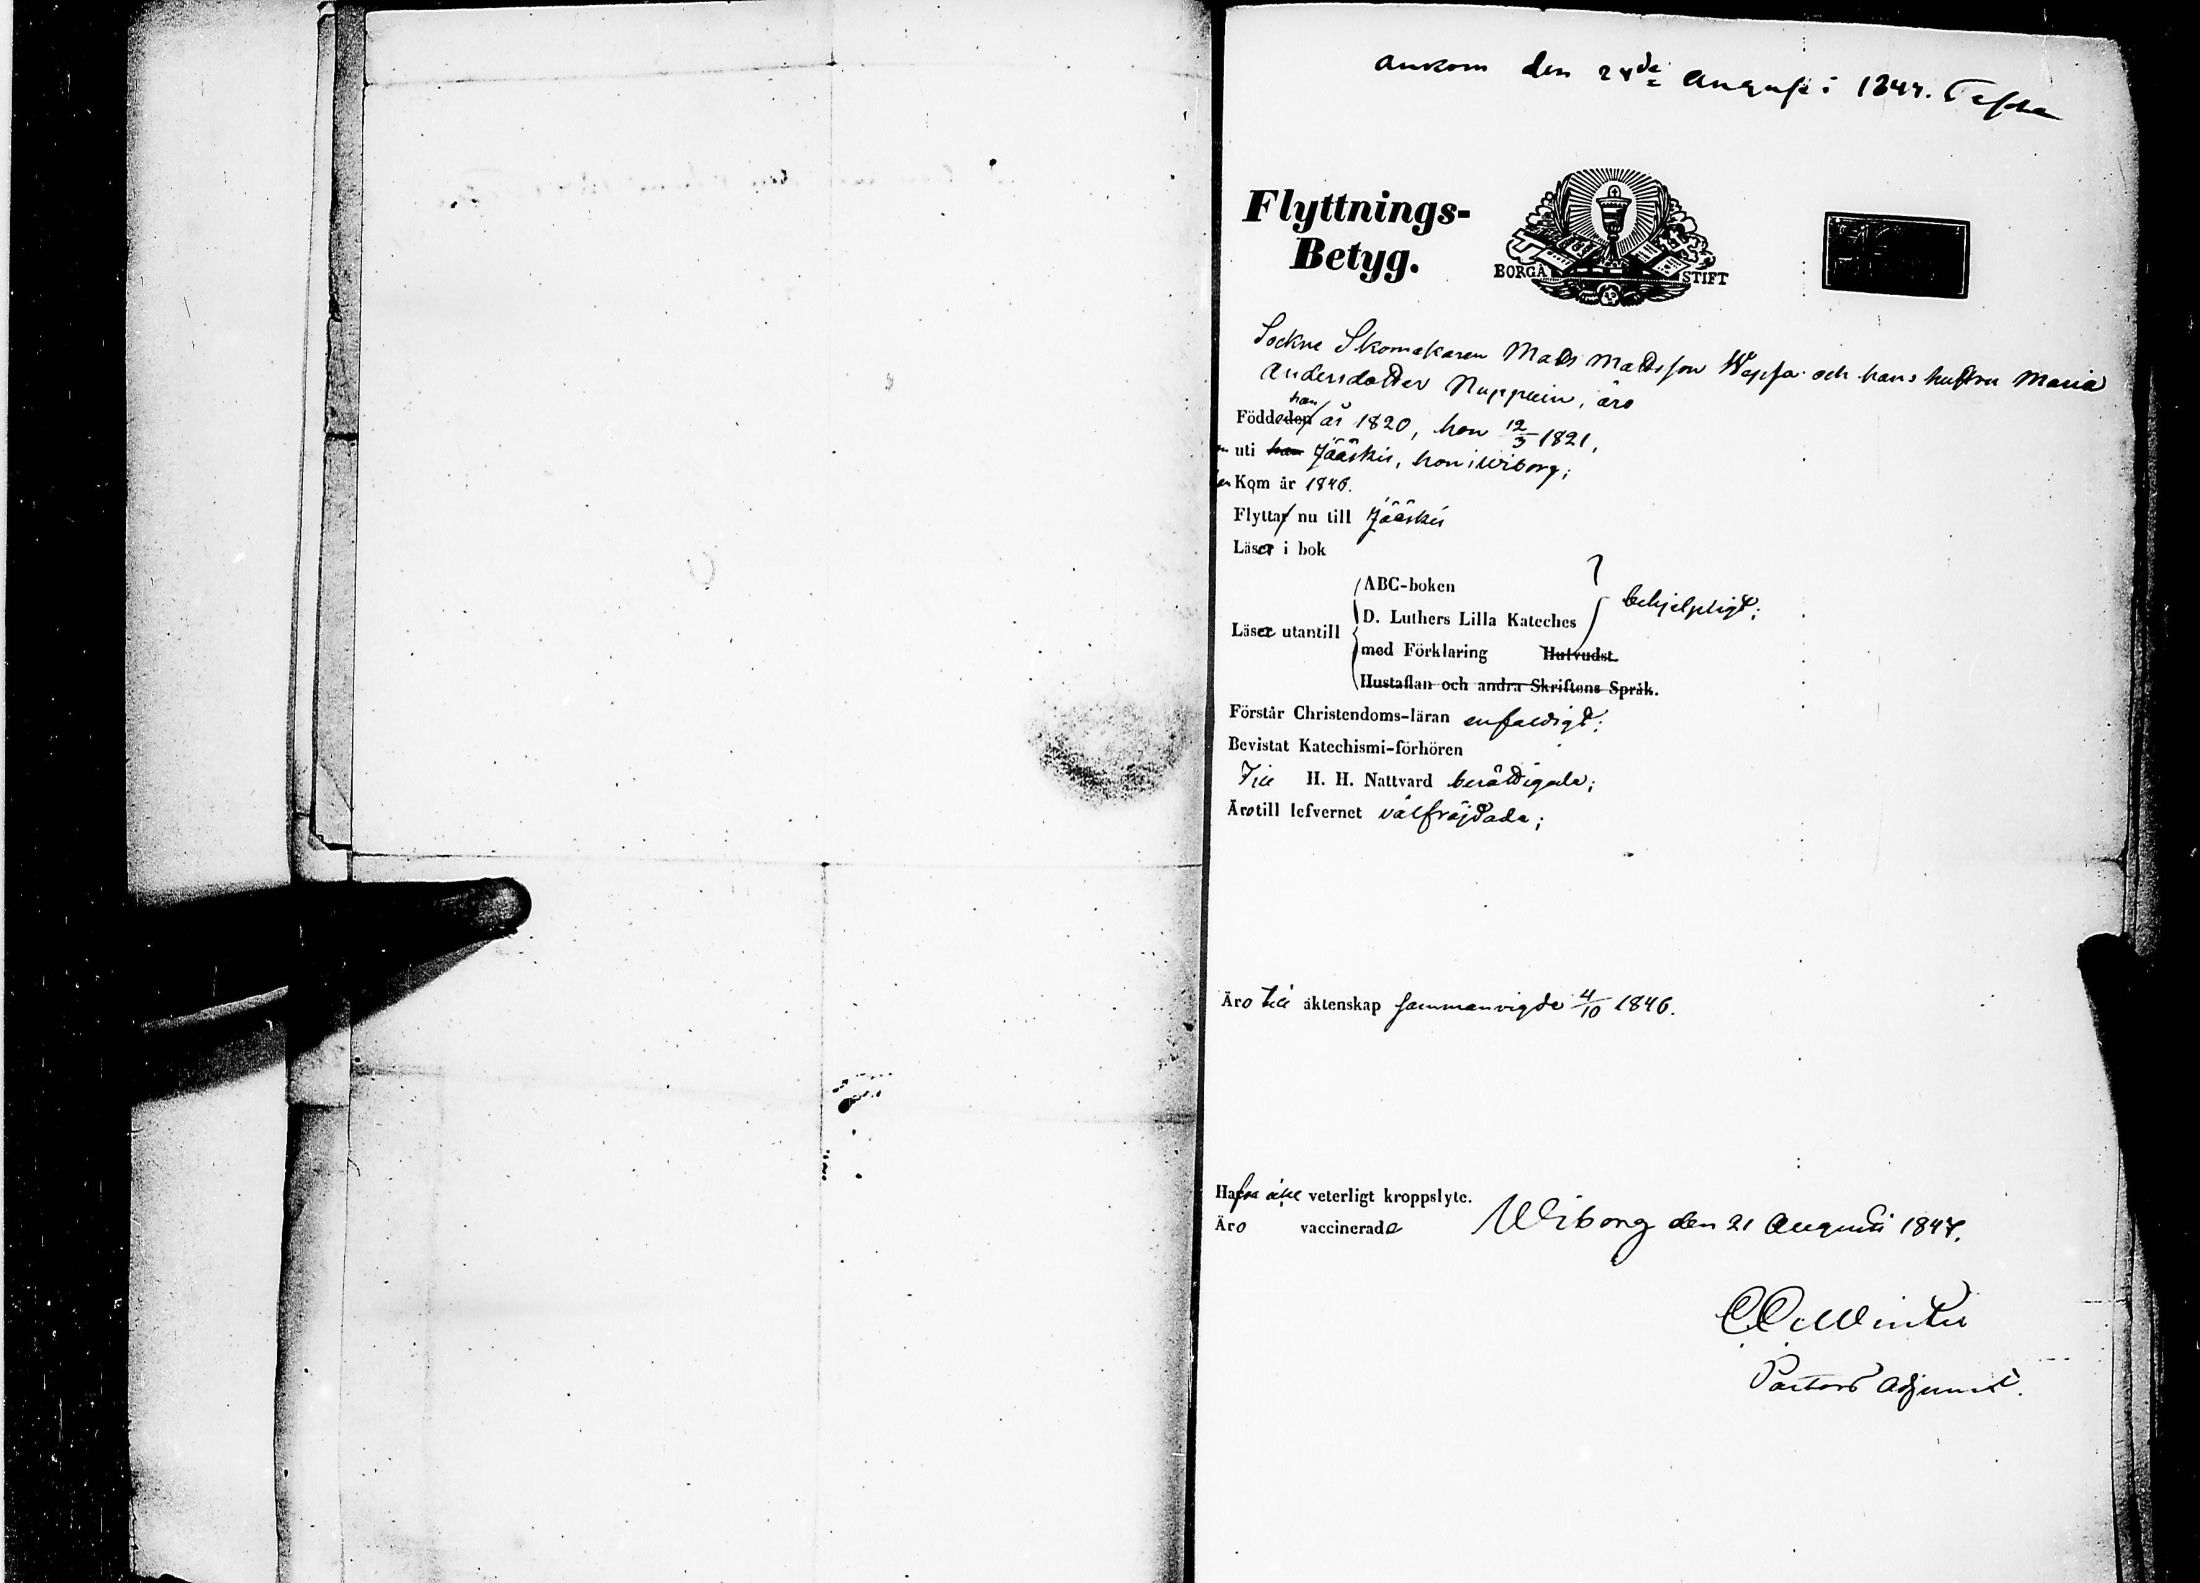 ankom den 28de Augusti 1847.
Flyttnings-
Betyg.
BORGÅ STIFT
Sockne Skomakaren Mats Matsson Weps och hans hustru Maria
Andersdotter Nuppuin, äro
han
Födde den år 1820, hon 12/3 1821,
uti han Jääskis, hon i Wiborg;
Kom år 1846.
Flytta nu till Jääskis
Läser i bok
ABC-boken
D. Luthers Lilla Kateches behjelpligt;
Läser utantill
med Förklaring Hufvudst.
Hustaflan och andra Skriftens Språk.
Förstår Christendoms-läran enfaldigt;
Bevistat Katechismi-förhören
Till H. H. Nattvard berättigade;
Äro till lefvernet välfräjdade;
Äro till äktenskap sammanvigde 4/10 1846.
Hafva icke veterligt kroppslyte.
Äro vaccinerade Wiborg den 21 Augusti 1847.
Winter
Pastors Adjunct.